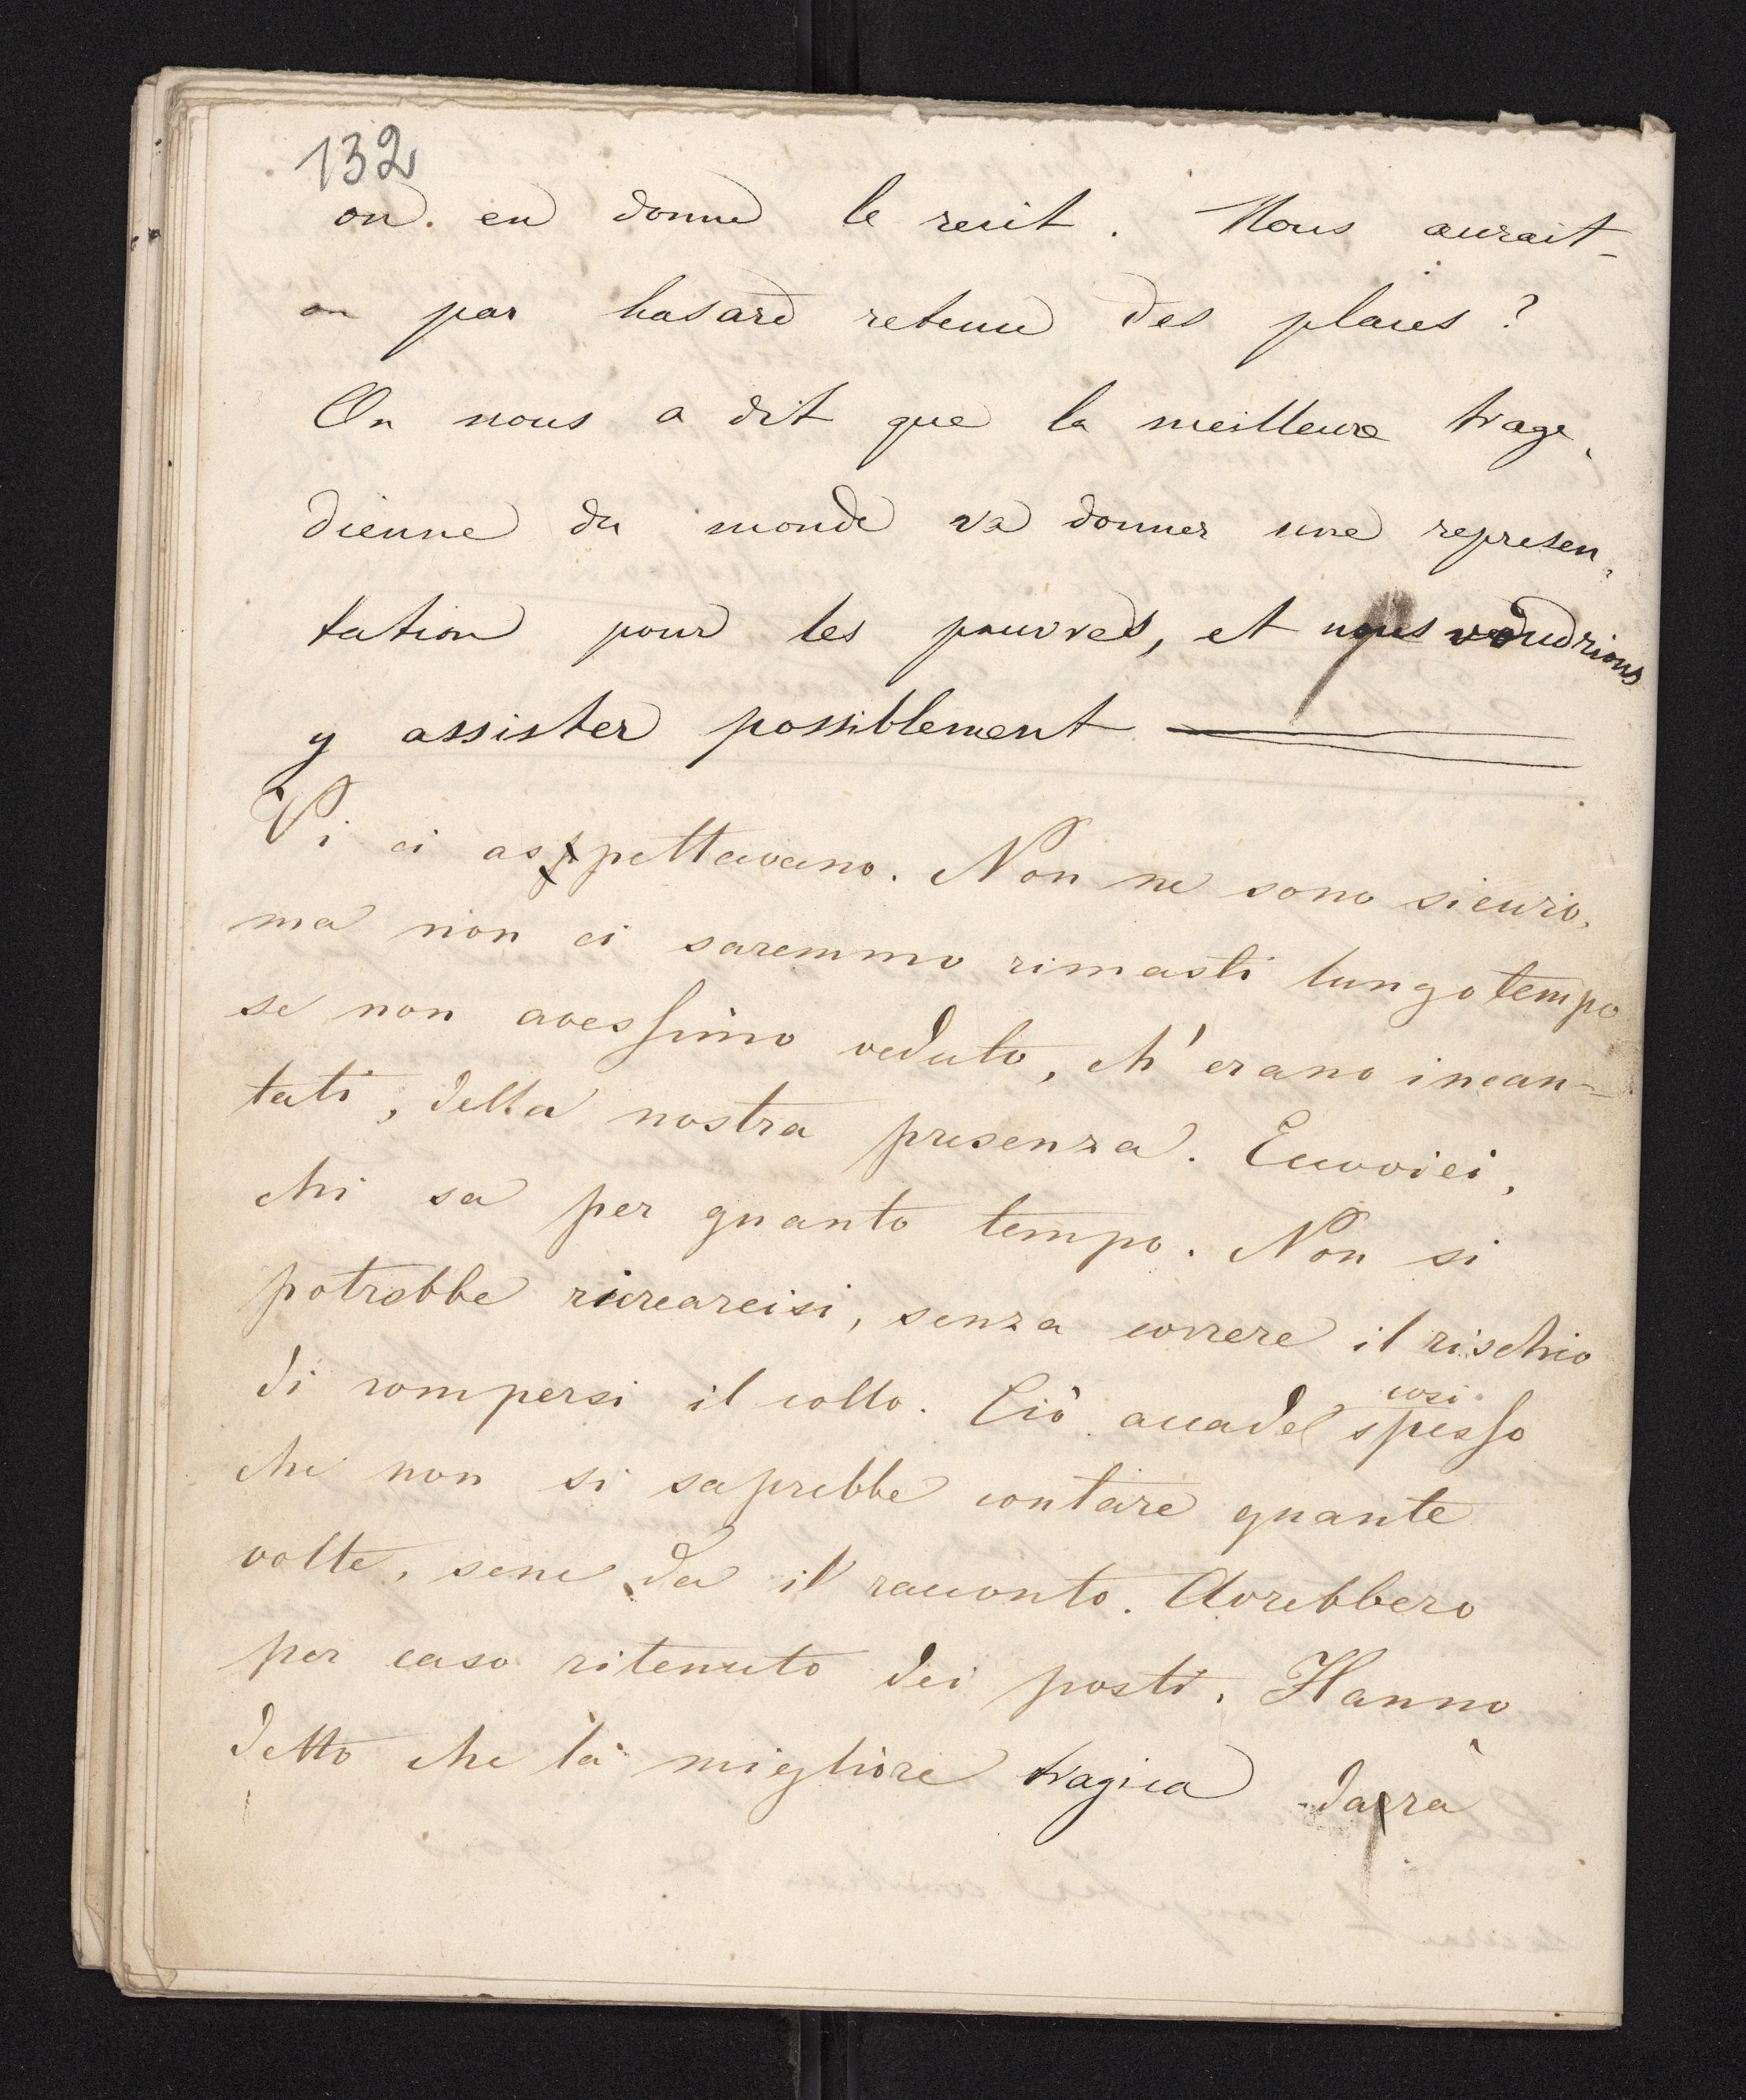 132
on en donne le recit. Nous aurait-
on par hasard retenu des places?
On nous a dit que la meilleure trage-
dienne du monde va donner une represen-
tation pour les pauvres, et nous voudrions
y assister possiblement
Vi ci aspettavano. Non ne sono sicuro,
ma non ci saremmo rimasti lungo tempo
se non avessimo veduto, ch'erano incan-
tati, della nostra presenza. Eccovici,
chi sa per quanto tempo. Non si
potrebbe ricrearcisi, senza correre il rischio
di rompersi il collo. Ciò accade così spesso
che non si saprebbe contare quante
volte, sene da il racconto. Avrebbero
per caso ritenuto dei posti. Hanno
detto che la migliore tragica darà